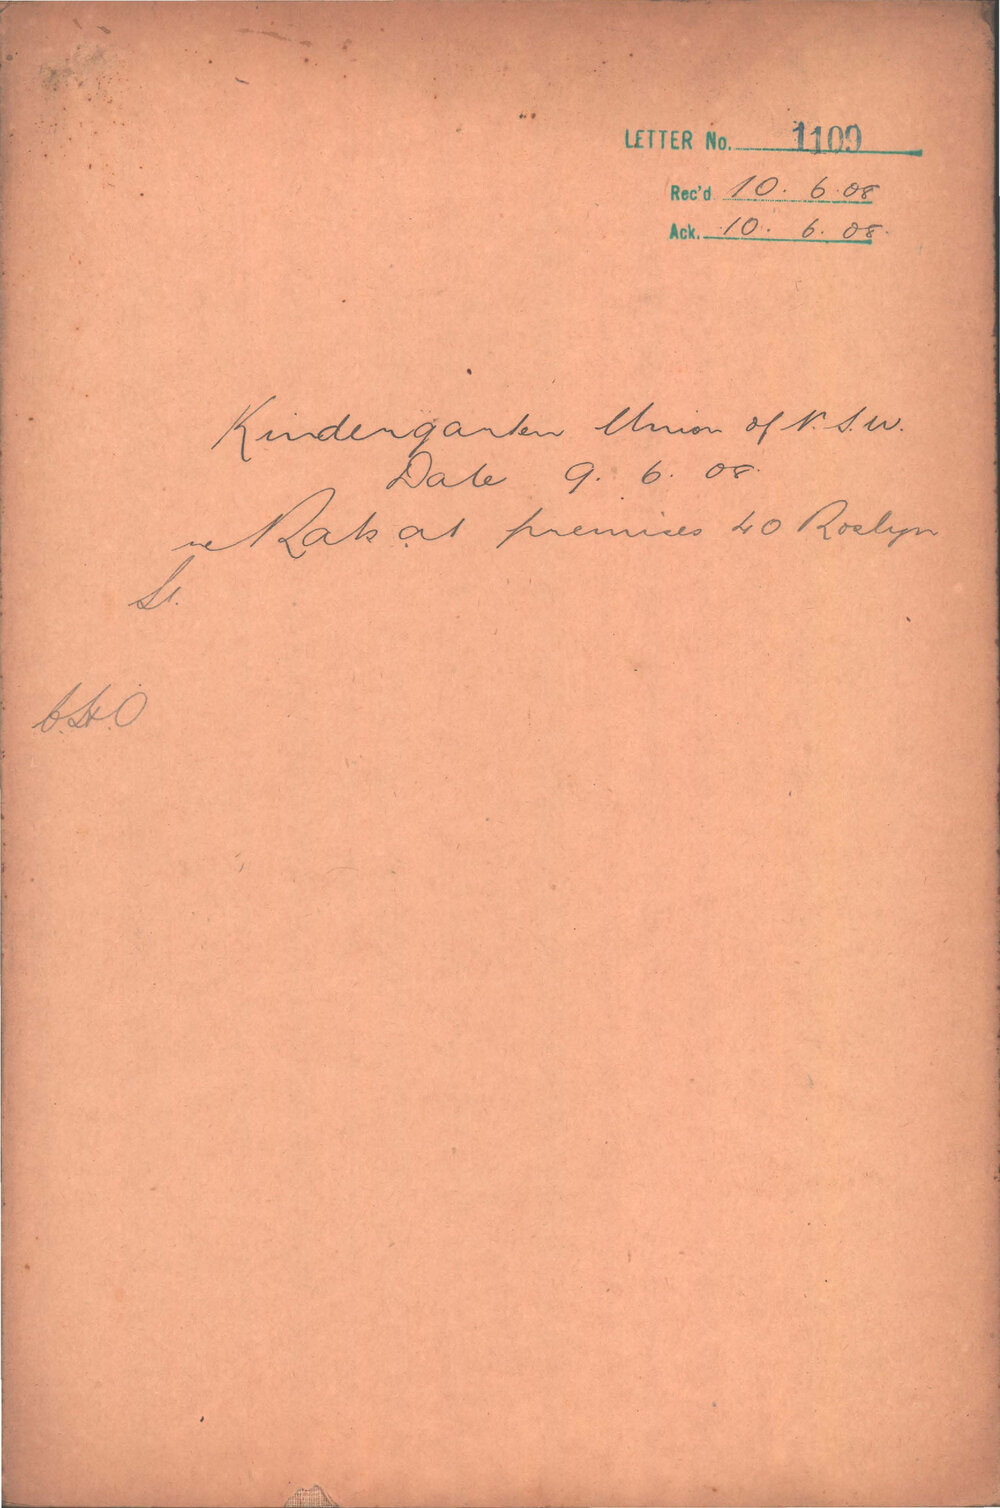 LETTER No. 1109
Rec'd 10. 6. 08
Ack. 10. 6. 08.
Kindergarten Union of N.S.W.
Date 9. 6. 08.
re Rats at premises 40 Roslyn
St.
C.H.O